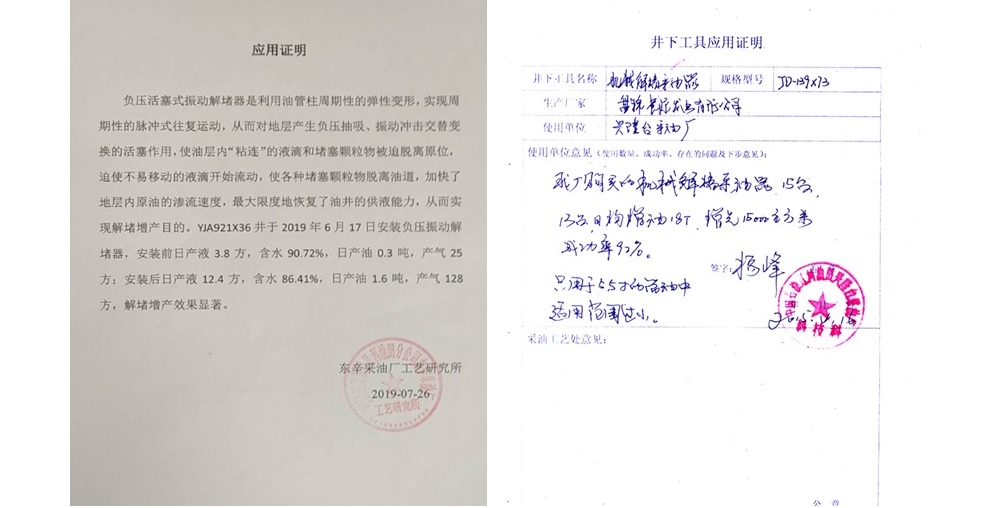 应用证明
负压活塞式振动解堵器是利用油管柱周期性的弹性变形，实现周
期性的脉冲式往复运动，从而对地层产生负压抽吸、振动冲击交替变
换的活塞作用，使油层内“粘连”的液滴和堵塞颗粒物被迫脱离原位，
迫使不易移动的液滴开始流动，使各种堵塞颗粒物脱离油道，加快了
地层内原油的渗流速度，最大限度地恢复了油井的供液能力，从而实
现解堵增产目的。YJA921X36 井于 2019 年 6 月 17 日安装负压振动解
堵器，安装前日产液 3.8 方，含水 90.72%，日产油 0.3 吨，产气 25
方；安装后日产液 12.4 方，含水 86.41%，日产油 1.6 吨，产气 128
方，解堵增产效果显著。
东辛采油厂工艺研究所
2019-07-26
工艺研究所
井下工具应用证明
井下工具名称 机械解堵采油器 规格型号 JD-139X73
生产厂家
使用单位 兴隆台采油厂
使用单位意见（使用数量、成功率、存在的问题及下步意见）：
我厂购买的机械解堵采油器 15台
13台日均增油18T 增气15000立方米
成功率92%。
签字：
只用于5.5寸的套管中
适用范围过小。
采油工艺处意见：
公 章